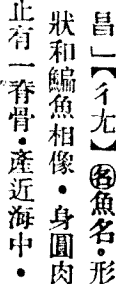 昌」【彳尤】㊔魚名·形
狀和鯿魚相像·身圓肉
止有一脊骨·產近海中·